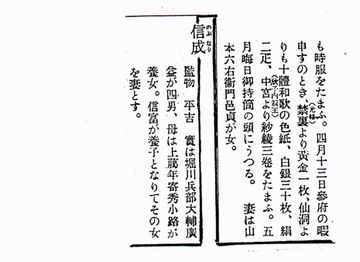 も時服をたまふ。四月十三日參府の暇
申すのとき、禁裏(光格)より黄金一枚、仙洞よ
りも十體和歌の色紙、白銀三十枚、絹
二疋、中宮(欣子内親王)より紗綾三卷をたまふ。五
月晦日御持筒の頭にうつる。 妻は山
本六右衞門邑貞が女。
信成
監物 平吉 實は堀川兵部大輔廣
益が四男、母は上﨟年寄秀小路が
養女。信富が養子となりてその女
を妻とす。